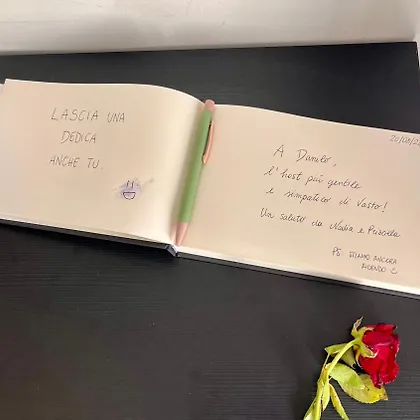 LASCIA UNA
DEDICA
ANCHE TU.
A Danilo,
l'host più gentile
e simpatico di Vasto!
Un saluto da Nadia e
PS. STIAMO ANCORA
RIDENDO